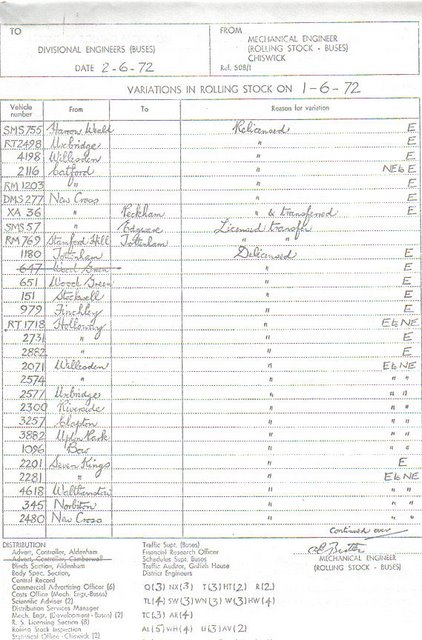 TO
DIVISIONAL ENGINEERS (BUSES)
DATE 2-6-72
FROM
MECHANICAL ENGINEER
(ROLLING STOCK - BUSES)
CHISWICK
Ref. 508/1
VARIATIONS IN ROLLING STOCK ON 1-6-72
Vehicle number From To Reason for variation
SMS 755 Harrow Weald Relicensed E
RT2498 Uxbridge " E
4198 Willesden " E
2116 Catford " NE to E
RM 1203 " " E
DMS 277 New Cross " E
XA 36 " Peckham " & transferred E
SMS 57 " Edgware Licensed transfer
RM 769 Stamford Hill Tottenham " "
1180 Tottenham Delicensed E
647 Wood Green
651 Wood Green " E
151 Stockwell " E
979 Finchley " E
RT 1718 Holloway " E to NE
2731 " " E
2882 " " E
2071 Willesden " E to NE
2574 " " " "
2577 Uxbridge " " "
2300 Riverside " " "
3257 Clapton " " "
3882 Upton Park " " "
1096 Bow " " "
2201 Seven Kings " E
2281 " " E to NE
4618 Walthamstow " " "
345 Norbiton " " "
2480 New Cross " " "
Continued over
DISTRIBUTION
Advert. Controller, Aldenham
Advert. Controller, Camberwell
Blinds Section, Aldenham
Body Spec. Section,
Central Record
Commercial Advertising Officer (6)
Costs Office (Mech. Engr.-Buses)
Scientific Adviser (2)
Distribution Services Manager
Mech. Engr. (Development-Buses) (2)
R. S. Licensing Section (8)
Rolling Stock Inspection
Statistical Office - Chiswick (2)
Traffic Supt. (Buses)
Financial Research Officer
Schedules Supt. Buses
Traffic Auditor, Griffith House
District Engineers
Q(3) NX(3) T(3) HT(2) R(2)
TL(4) SW(3) WN(3) W(3) HW(4)
TC(3) AR(4)
AL(5) WH(4) U(3) AV(2)
MECHANICAL ENGINEER
(ROLLING STOCK - BUSES)